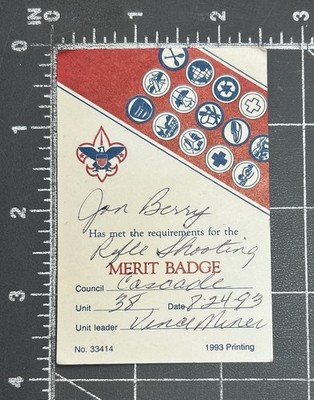 IN 0 1 2 3
0
1
2
3
4
Jon Berry
Has met the requirements for the
Rifle Shooting
MERIT BADGE
Council Cascade
Unit 38 Date 8-24-93
Unit leader Vince Miner
No. 33414 1993 Printing